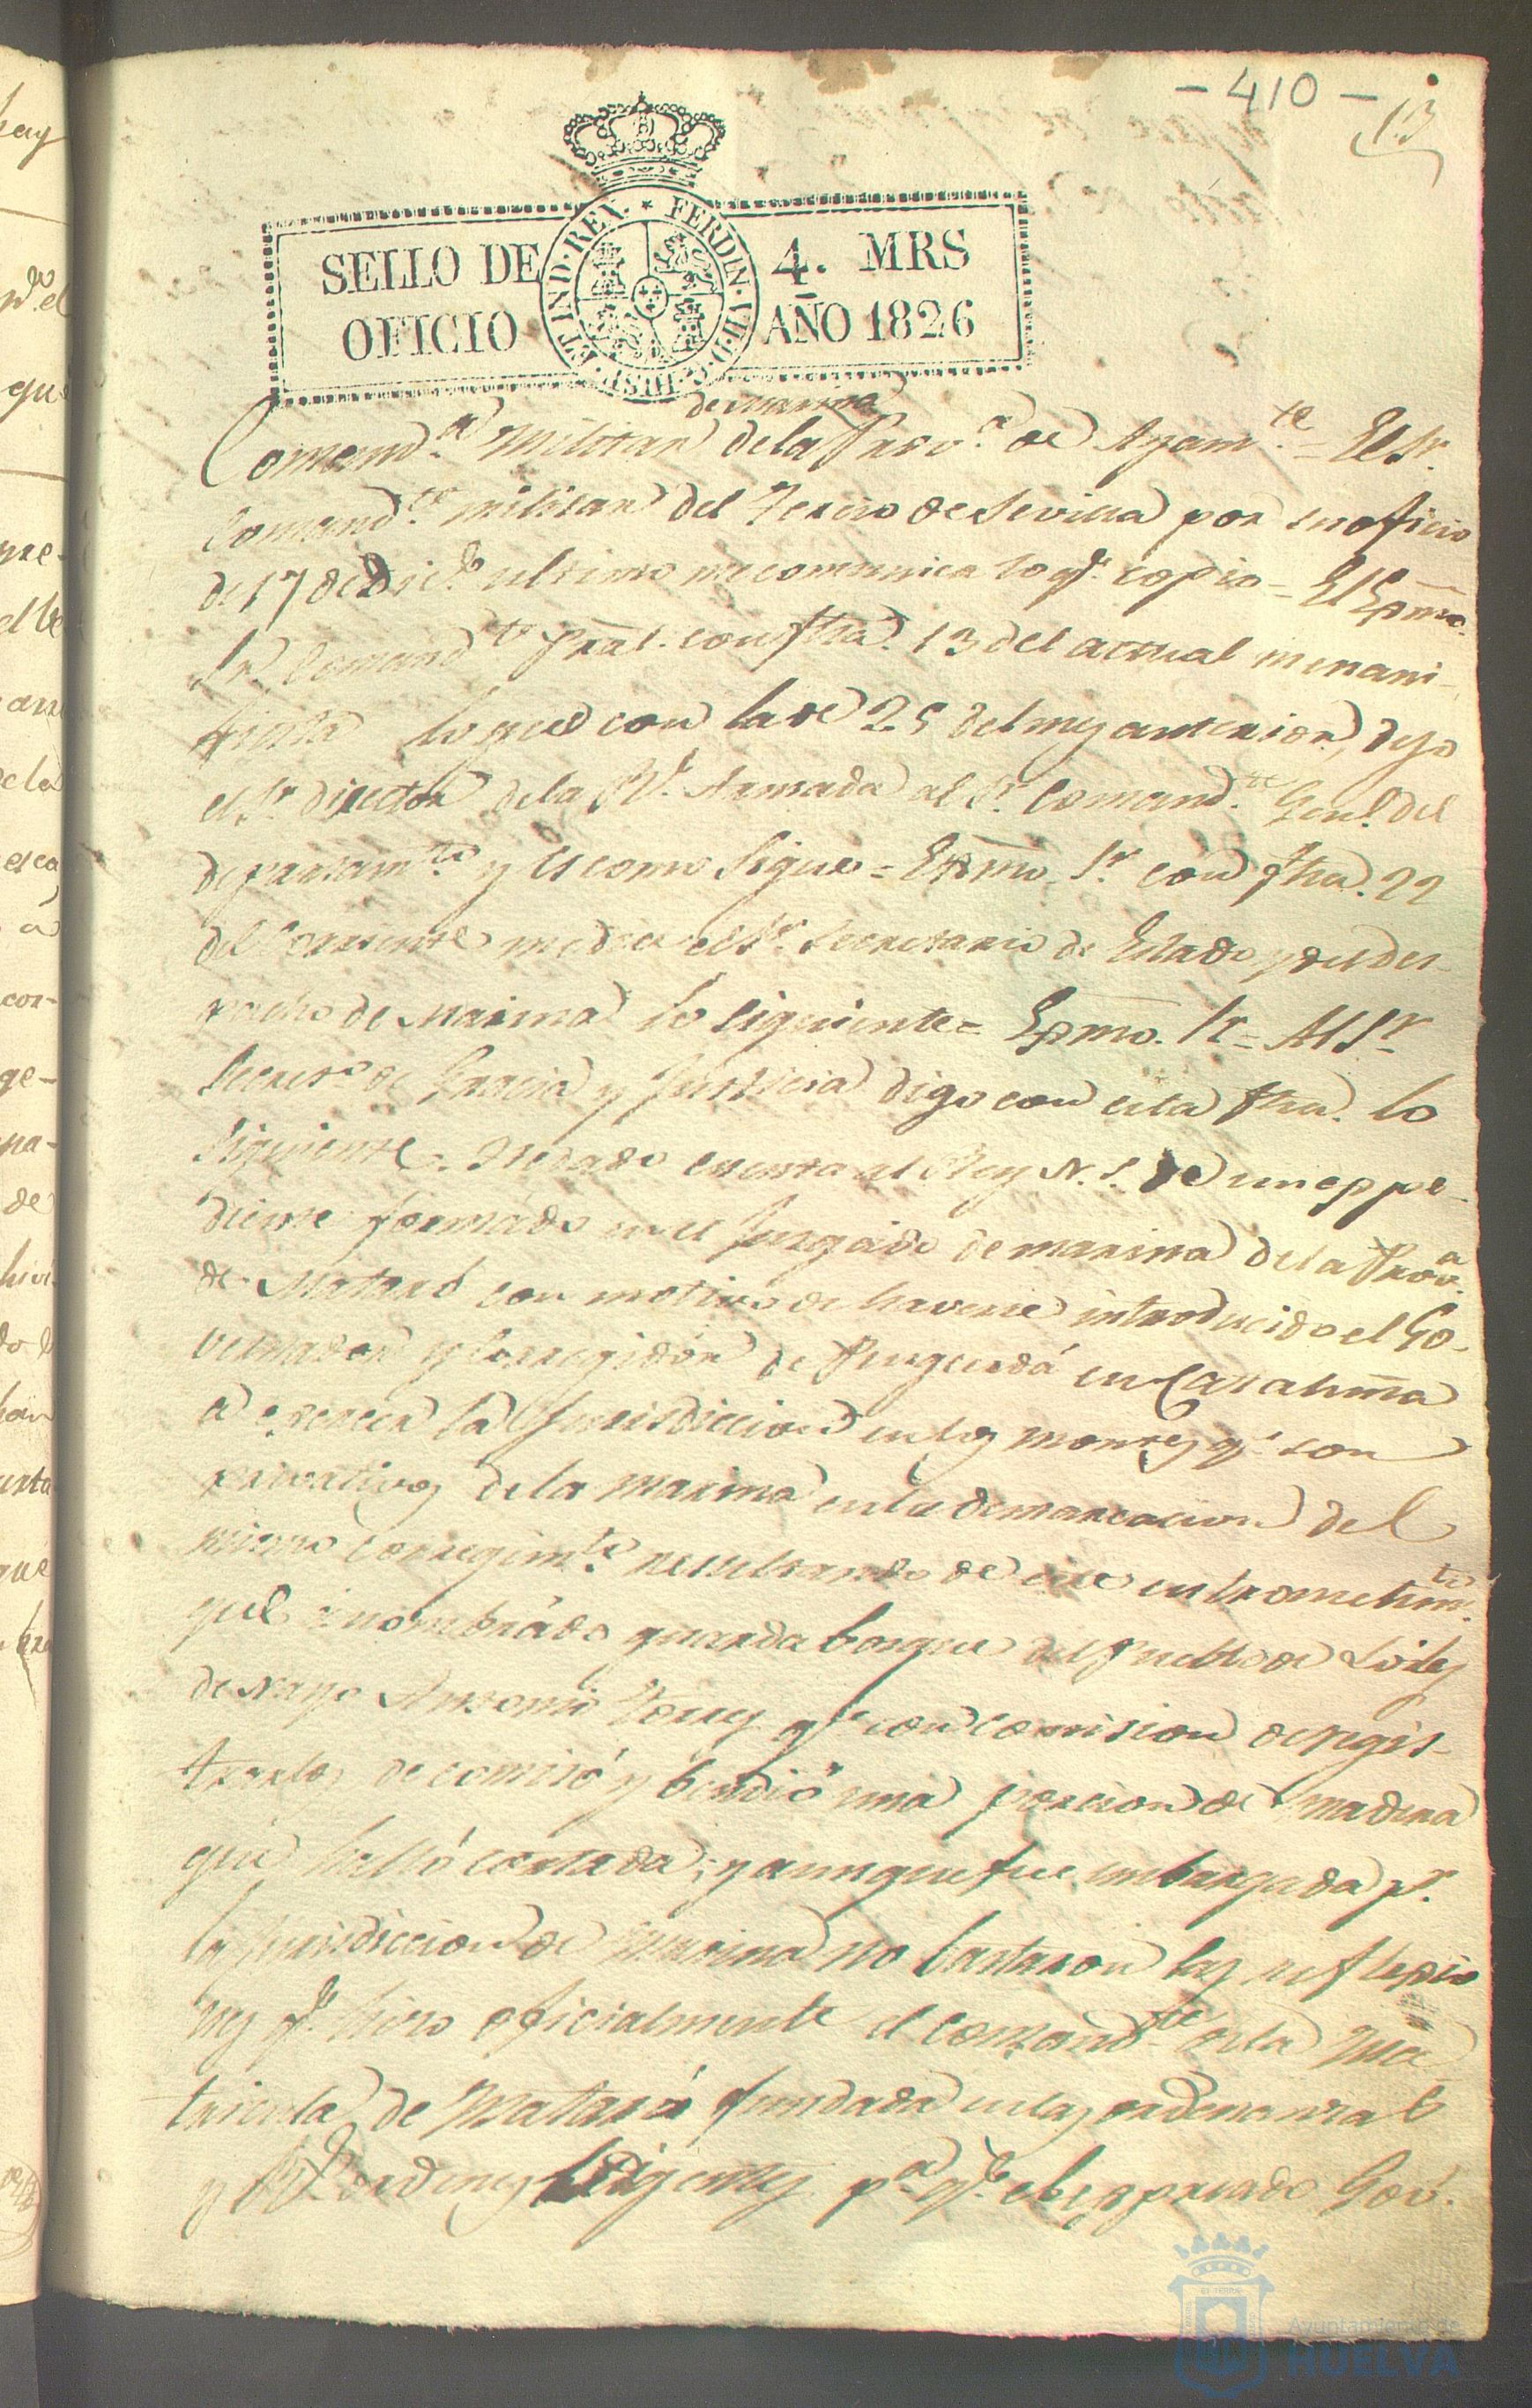 - 410 -
13
SELLO DE OFICIO
4. MRS AÑO 1826
FERDIN · VII · D · G · HISP · ET IND · REX ·
de marina
Comand.a Militar de la Prov.a de Ayam.te = El Sr.
Comand.te militar del Tercio de Sevilla por su oficio
de 17 de Dic.e ultimo me comunica lo q.e copio = El Exmo.
Sr. Comand.te Gral. con fha. 13 del actual me mani-
fiesta lo que con la de 25 del mes anterior, dijo
el Sr. director de la Rl. Armada al Sr. Comand.te Genl. del
departam.to y es como sigue = Exmo. Sr. con fha. 22
del corriente me dice el Sr. Secretario de Estado y del des-
pacho de Marina lo siguiente = Exmo. Sr = Al Sr
Secret.o de Gracia y Justicia digo con esta fha. lo
siguiente. He dado cuenta al Rey N. S. de un expe-
diente formado en el Juzgado de marina de la Prov.a
de Mataró con motivo de haverse introducido el Go-
vernador y Corregidor de Puigcerdá en Cataluña
a exercer la Jurisdiccion en los montes q.e son
privativos de la marina en la demarcacion del
mismo corregim.to resultando de este entrometim.to
que nombrado guarda bosques del Pueblo de
de Antonio Torres q.e con comision de regis-
trarlos decomisó y bendió una porcion de madera
que halló cortada; y aunque fue embargada p.r
la jurisdiccion de Marina no bastaron las reflexio
nes q.e hizo oficialmente el comand.te de la Ma
tricula de Mataró fundada en las ordenanzas
y Rs. ordenes vigentes p.a q.e el expresado Gov.
Ayuntamiento de
HUELVA